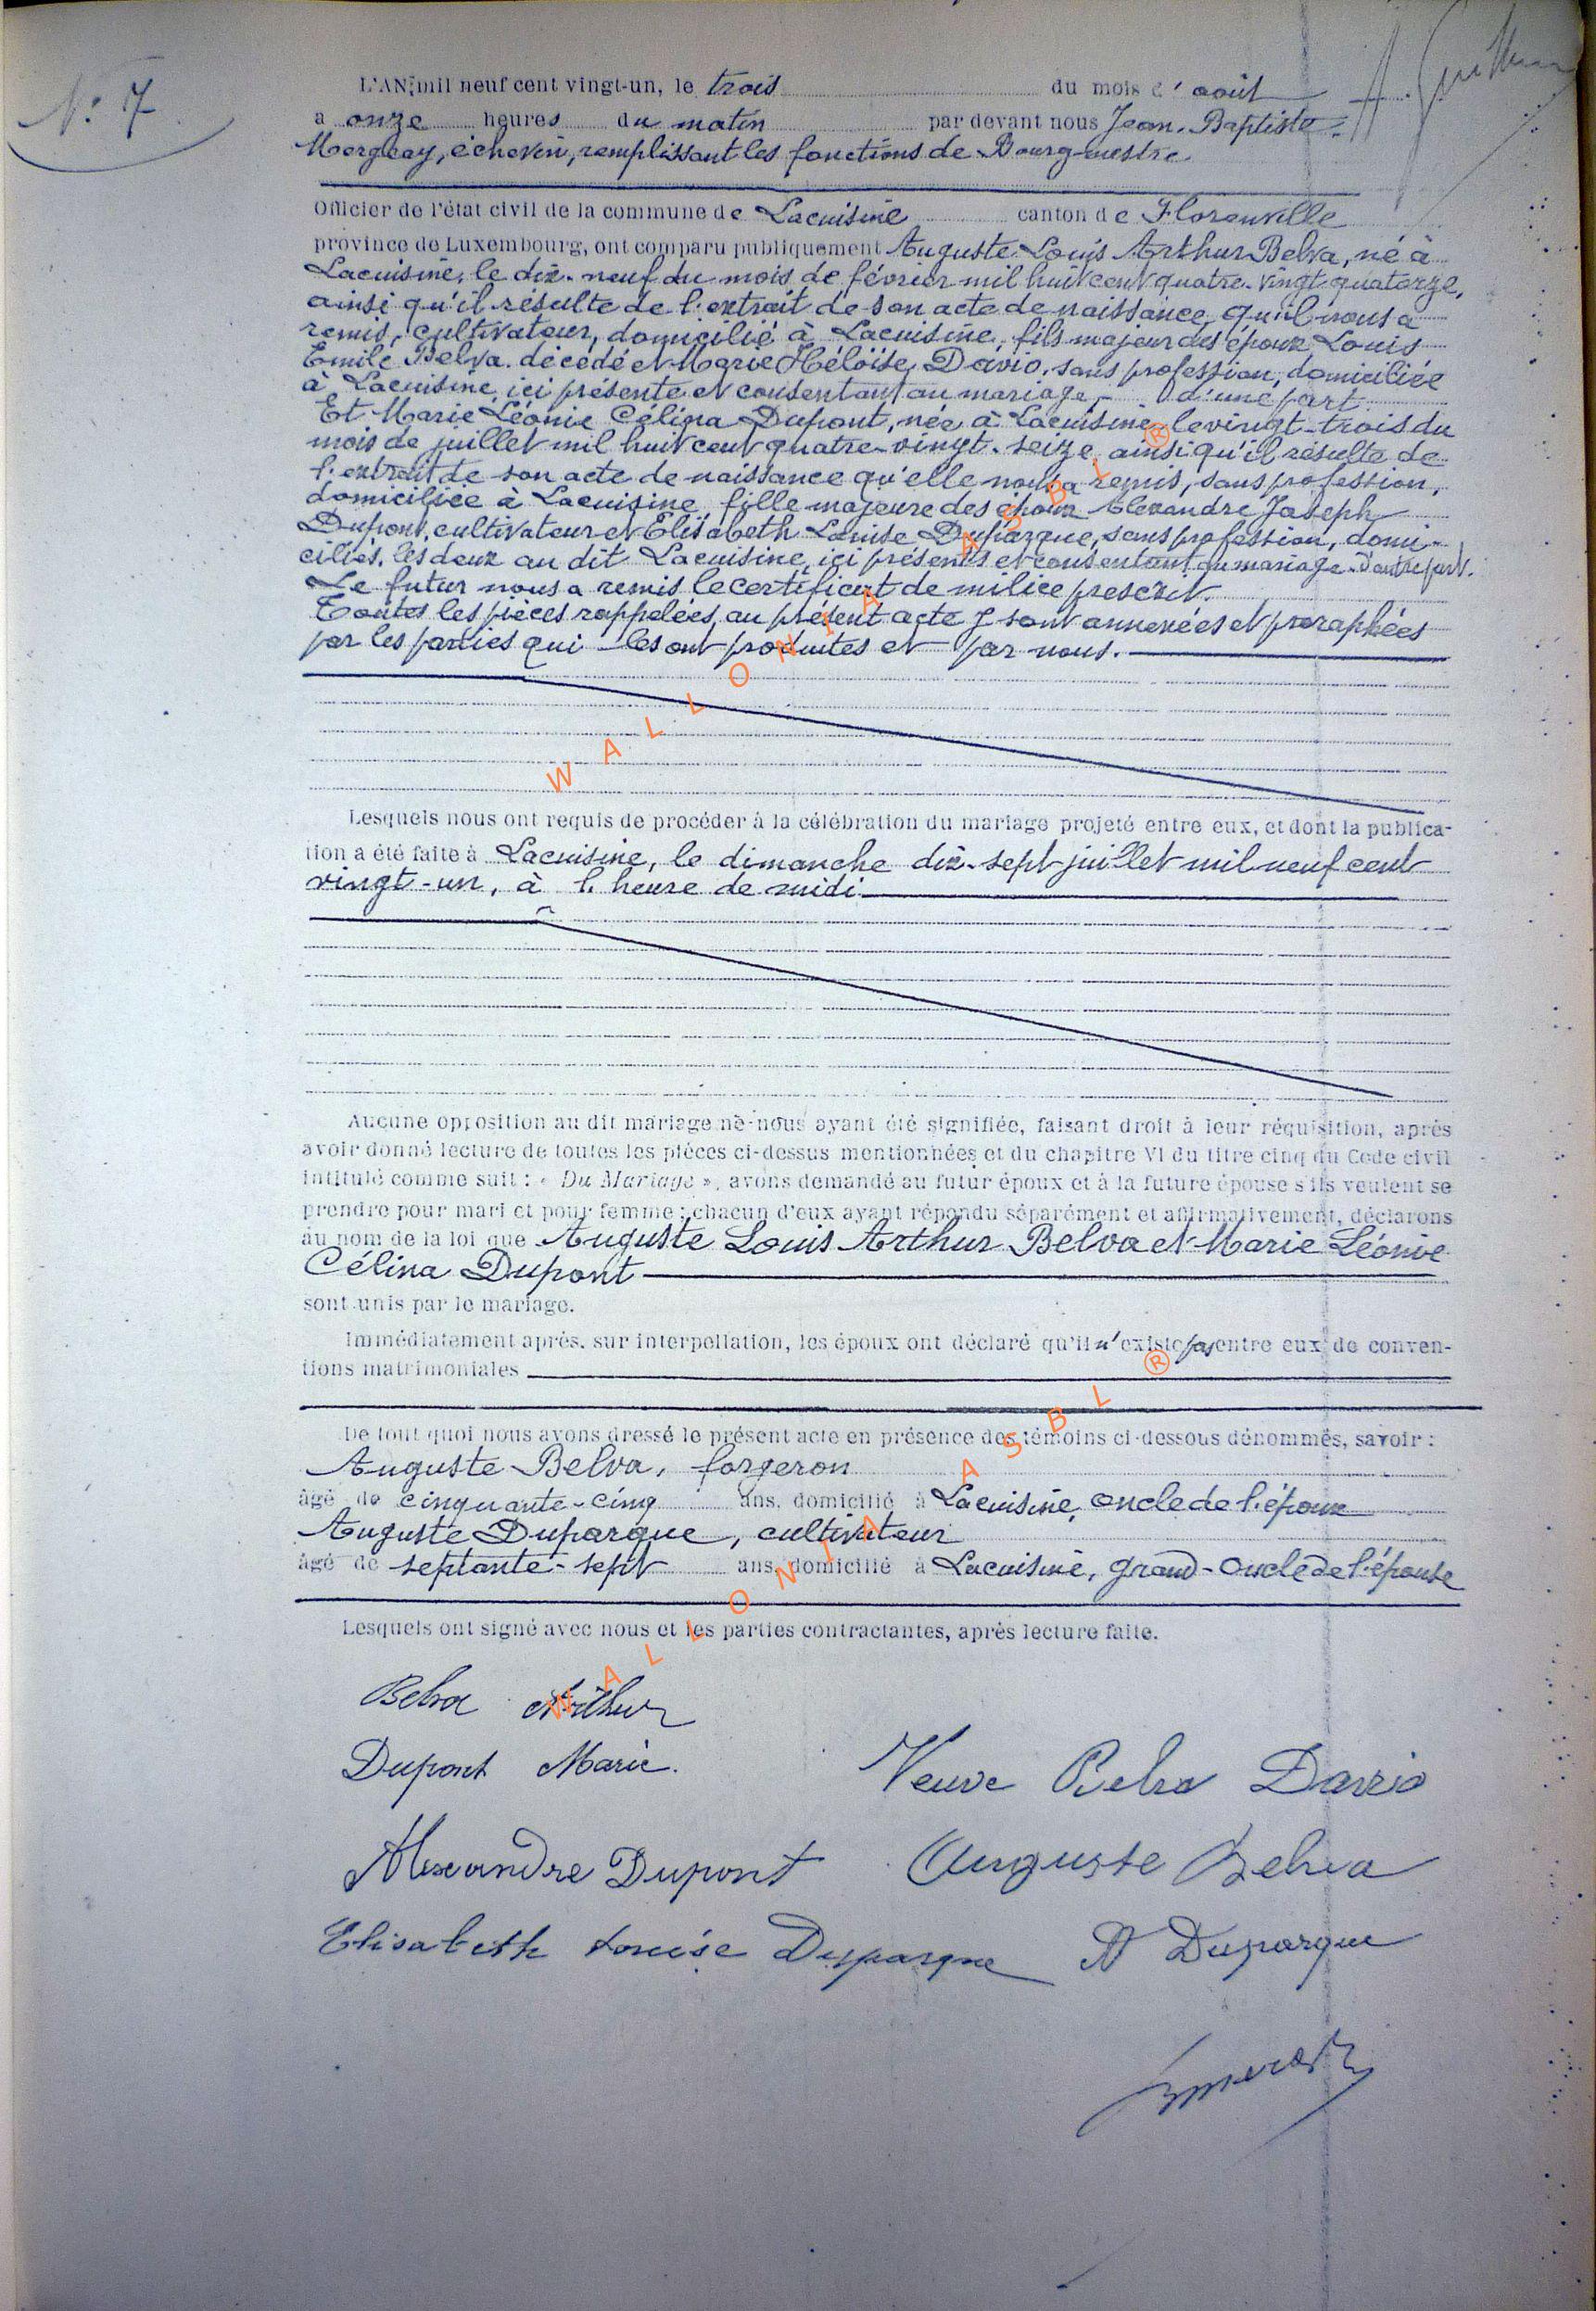 N° 7
L'AN mil neuf cent vingt-un, le trois du mois d'août
a onze heures du matin par devant nous Jean-Baptiste
échevin, remplissant les fonctions de Bourgmestre
Officier de l'état civil de la commune de Lacuisine canton de Florenville
province de Luxembourg, ont comparu publiquement Auguste Louis Arthur Belva, né à
Lacuisine, le dix-neuf du mois de février mil huit cent quatre-vingt quatorze,
ainsi qu'il résulte de l'extrait de son acte de naissance, qu'il nous a
remis, cultivateur, domicilié à Lacuisine, fils majeur des époux Louis
Emile Belva décédé et Marie Héloïse Davio, sans profession, domiciliée
à Lacuisine, ici présente et consentant au mariage, d'une part
Et Marie Léonie Célina Dupont, née à Lacuisine le vingt-trois du
mois de juillet mil huit cent quatre-vingt-seize, ainsi qu'il résulte de
l'extrait de son acte de naissance qu'elle nous a remis, sans profession,
domiciliée à Lacuisine, fille majeure des époux Alexandre Joseph
Dupont, cultivateur et Elisabeth Louise Duparque, sans profession, domi-
ciliés, les deux au dit Lacuisine, ici présents et consentant au mariage d'autre part.
Le futur nous a remis le certificat de milice prescrit.
Toutes les pièces rappelées au présent acte y sont annexées et paraphées
par les parties qui les ont produites et par nous.
Lesquels nous ont requis de procéder à la célébration du mariage projeté entre eux, et dont la publica-
tion a été faite à Lacuisine, le dimanche dix-sept juillet mil neuf cent
vingt-un, à l'heure de midi
Aucune opposition au dit mariage ne nous ayant été signifiée, faisant droit à leur réquisition, après
avoir donné lecture de toutes les pièces ci-dessus mentionnées et du chapitre VI du titre cinq du Code civil
intitulé comme suit : « Du Mariage », avons demandé au futur époux et à la future épouse s'ils veulent se
prendre pour mari et pour femme ; chacun d'eux ayant répondu séparément et affirmativement, déclarons
au nom de la loi que Auguste Louis Arthur Belva et Marie Léonie
Célina Dupont
sont unis par le mariage.
Immédiatement après, sur interpellation, les époux ont déclaré qu'il n'existe pas entre eux de conven-
tions matrimoniales
De tout quoi nous avons dressé le présent acte en présence des témoins ci-dessous dénommés, savoir :
Auguste Belva, forgeron
âgé de cinquante-cinq ans, domicilié à Lacuisine, oncle de l'époux
Auguste Duparque, cultivateur
âgé de septante-sept ans, domicilié à Lacuisine, grand-oncle de l'épouse
Lesquels ont signé avec nous et les parties contractantes, après lecture faite.
Belva Arthur
Dupont Marie.
Veuve Belva Davio
Alexandre Dupont
Auguste Belva
Elisabeth Louise Duparque
A Duparque
WALLONIA ASBL ®
WALLONIA ASBL ®